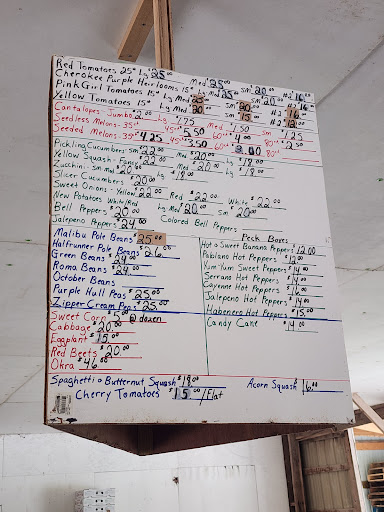 Red Tomatoes 25# Lg 25.00 Med 25.00 Sm 20.00 #2 16.00
Cherokee Purple Heirlooms 15# Lg 25.00 Sm 20.00
Pink Girl Tomatoes 15# Lg Med 25.00 Sm 20.00 #2 16.00
Yellow Tomatoes 15# Lg Med 20.00 Sm 15.00 #2 12.00
Cantalopes - Jumbo 2.00 Lg 1.75 Med 1.50 Sm 1.25
Seedless Melons 35# 4.25 45# 5.50 60ct 4.00 80ct 2.50
Seeded Melons 35# 45# 3.50 60ct 3.00 80ct
Pickling Cucumbers: Sm 22.00 Med 20.00 Lg 18.00
Yellow Squash - Fancy 22.00 Med 20.00 Lg 18.00
Zucchini - Sm Med 20.00 Lg 18.00
Slicer Cucumbers 20.00
Sweet Onions - Yellow 22.00 Red 22.00 White 22.00
New Potatoes White/Red Lg Med 20.00 Sm 20.00
Bell Peppers 20.00 Colored Bell Peppers
Jalapeno Peppers 24.00
Malibu Pole Beans 25.00
Halfrunner Pole Beans 26.00
Green Beans 24.00
Roma Beans 24.00
October Beans
Purple Hull Peas $25.00
Zipper Cream Peas 25.00
Sweet Corn $5.00 @ dozen
Cabbage 20.00
Eggplant 15.00
Red Beets 20.00
Okra $46.00
Peck Boxes
Hot & Sweet Banana Peppers 12.00
Poblano Hot Peppers $12.00
Yum Yum Sweet Peppers $14.00
Serrano Hot Peppers $18.00
Cayenne Hot Peppers $16.00
Jalapeno Hot Peppers $14.00
Habenero Hot Peppers $15.00
Candy Cane $14.00
Spaghetti & Butternut Squash $19.00 Acorn Squash 16.00
Cherry Tomatoes $15.00/Flat